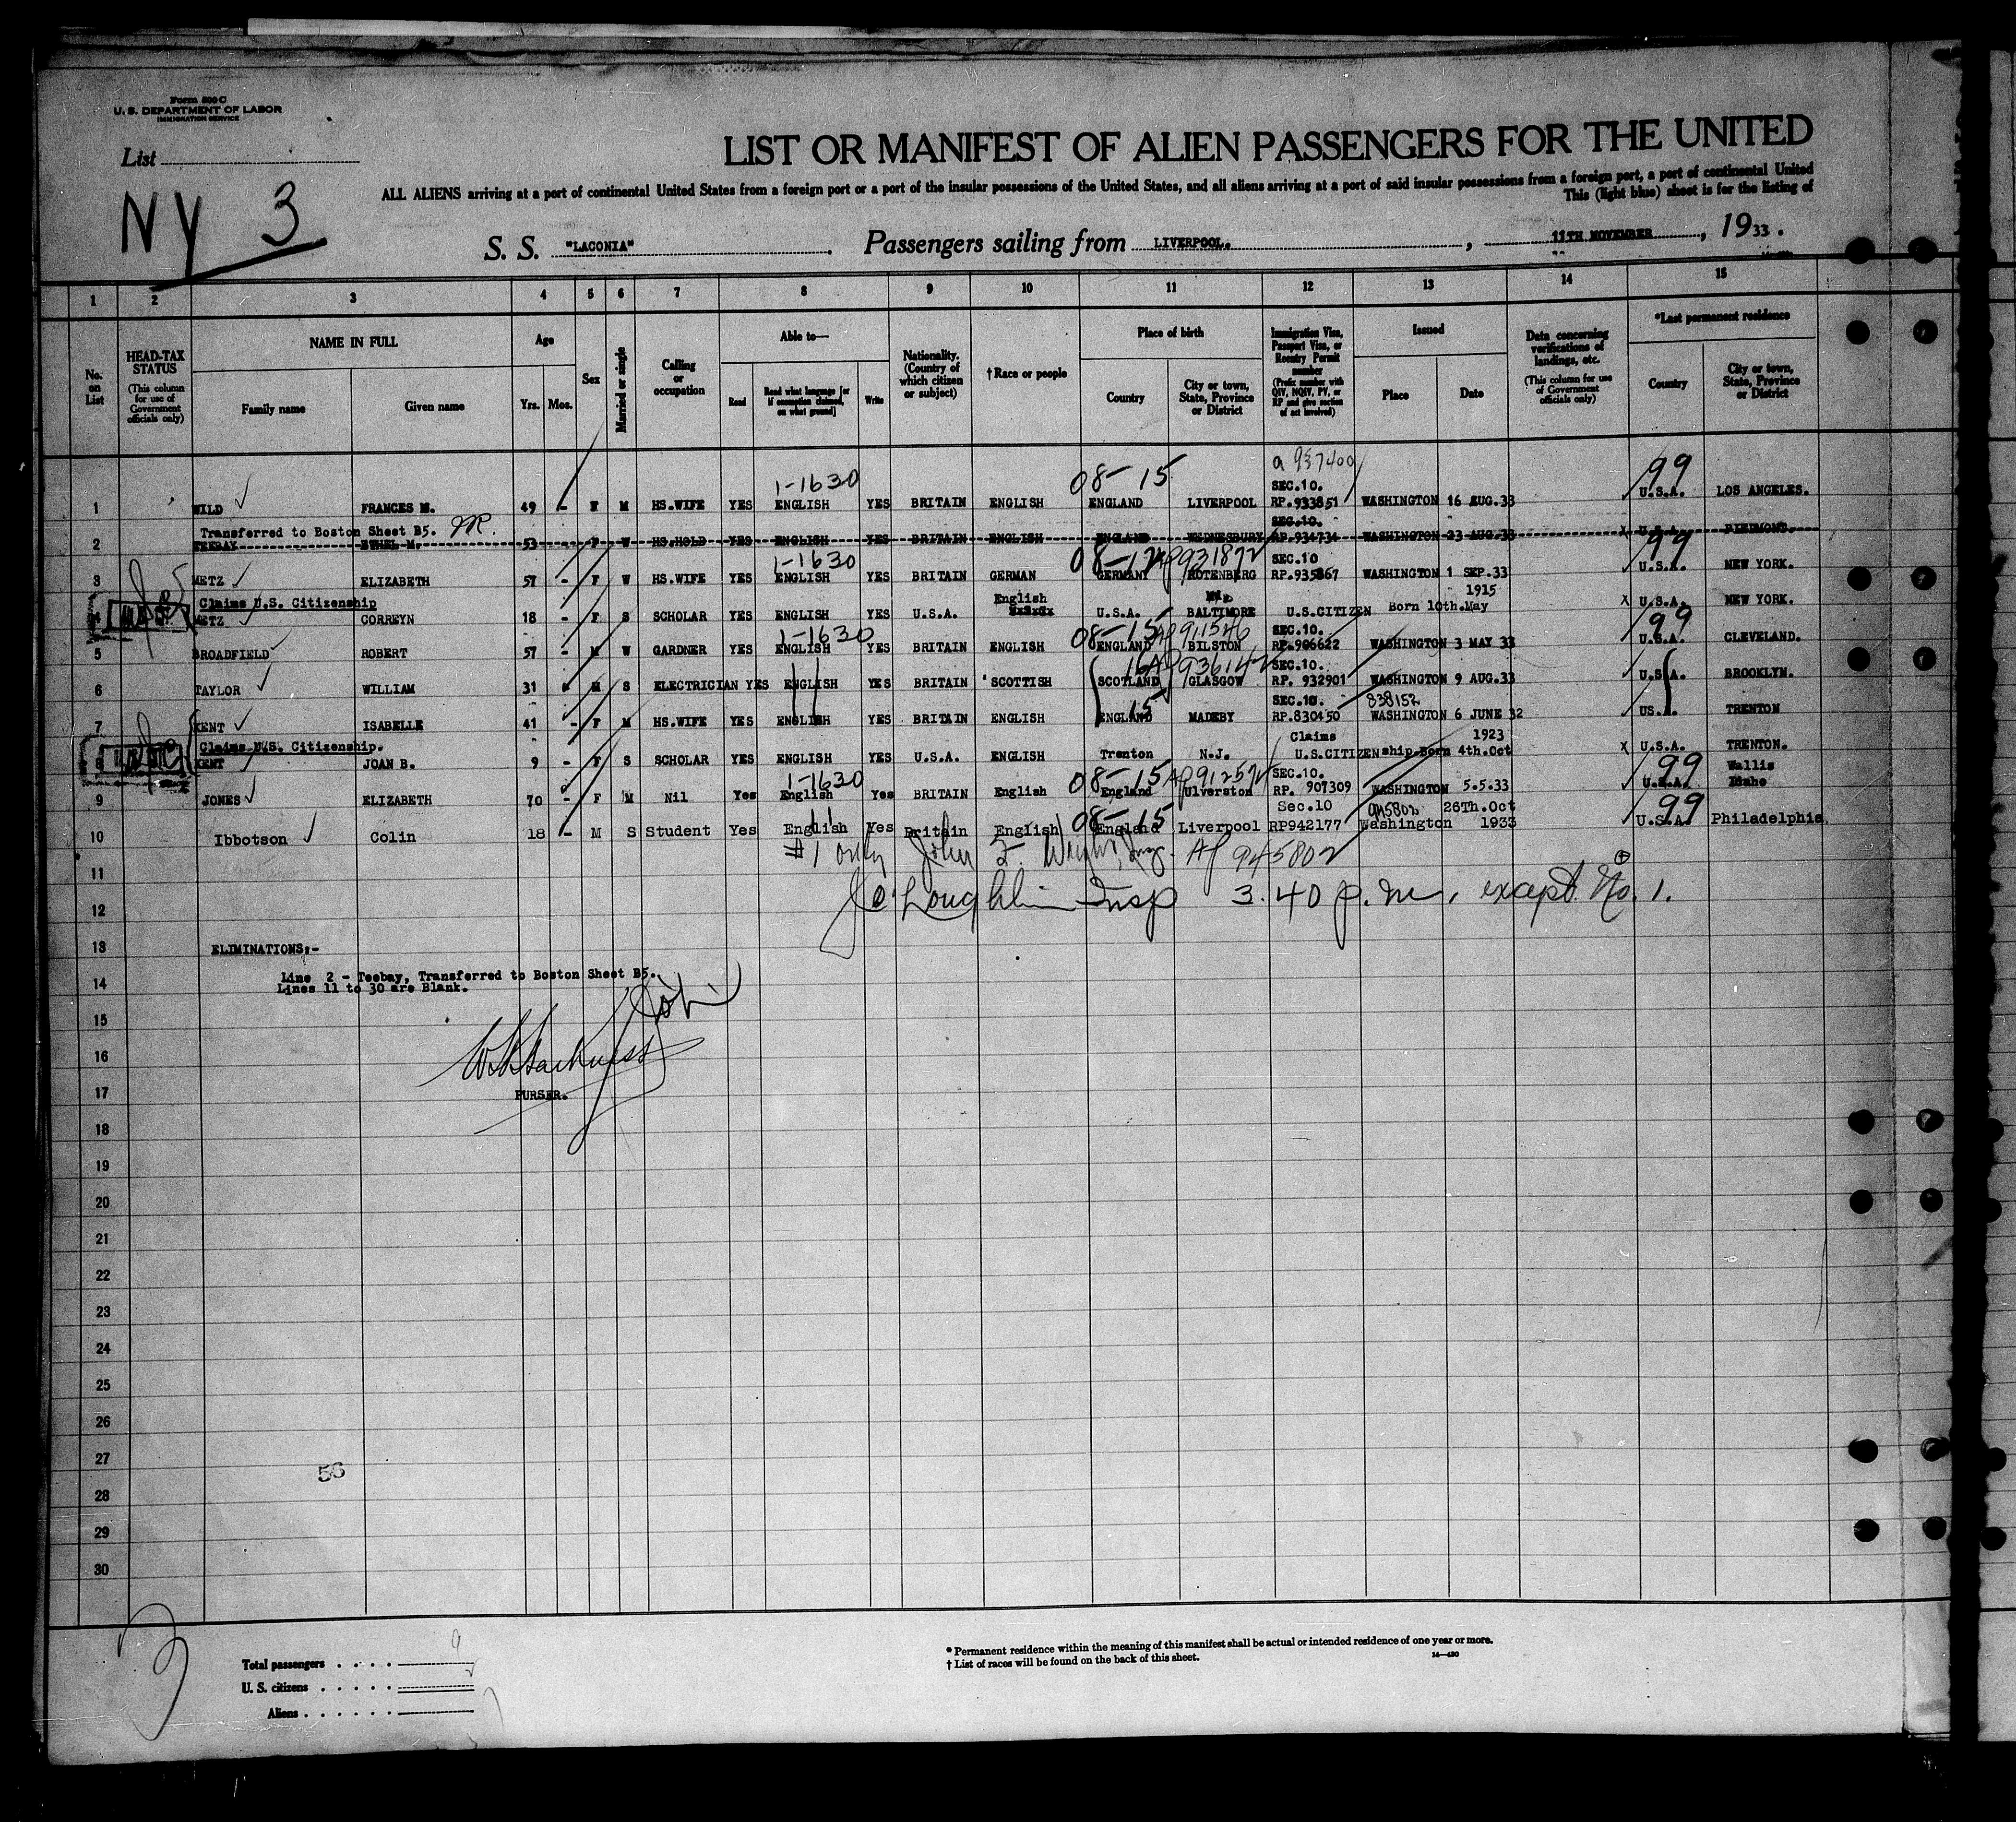 Form 500 C
U. S. DEPARTMENT OF LABOR
IMMIGRATION SERVICE
List
NY 3
LIST OR MANIFEST OF ALIEN PASSENGERS FOR THE UNITED
ALL ALIENS arriving at a port of continental United States from a foreign port or a port of the insular possessions of the United States, and all aliens arriving at a port of said insular possessions from a foreign port, a port of continental United
This (light blue) sheet is for the listing of
S. S. "LACONIA" Passengers sailing from LIVERPOOL. , 11TH NOVEMBER , 1933.
1 2 3 4 5 6 7 8 9 10 11 12 13 14 15
No. on List
HEAD-TAX STATUS (This column for use of Government officials only)
NAME IN FULL
Family name Given name
Age
Yrs. Mos.
Sex
Married or single
Calling or occupation
Able to—
Read Read what language [or if exemption claimed, on what ground] Write
Nationality. (Country of which citizen or subject)
†Race or people
Place of birth
Country City or town, State, Province or District
Immigration Visa, Passport Visa, or Reentry Permit number (Prefix number with QIV, NQIV, PV, or RP and give section of act involved)
Issued
Place Date
Data concerning verifications of landings, etc. (This column for use of Government officials only)
*Last permanent residence
Country City or town, State, Province or District
a 937400
1-1630 08-15 SEC.10. 99
1 WILD FRANCES M. 49 - F M HS.WIFE YES ENGLISH YES BRITAIN ENGLISH ENGLAND LIVERPOOL RP.933851 WASHINGTON 16 AUG.33 U.S.A. LOS ANGELES.
Transferred to Boston Sheet B5. SEC.10.
2 TEEBAY ETHEL M. 53 - F W HS.HOLD YES ENGLISH YES BRITAIN ENGLISH ENGLAND WEDNESBURY RP.934734 WASHINGTON 23 AUG.33 X U.S.A. PIEDMONT.
1-1630 08-12 Af 931872 SEC.10 99
3 METZ ELIZABETH 57 - F W HS.WIFE YES ENGLISH YES BRITAIN GERMAN GERMANY ROTENBERG RP.935867 WASHINGTON 1 SEP.33 U.S.A. NEW YORK.
Claims U.S. Citizenship English Md. 1915
4 METZ CORREYN 18 - F S SCHOLAR YES ENGLISH YES U.S.A. U.S.A. BALTIMORE U.S.CITIZEN Born 10th.May X U.S.A. NEW YORK.
1-1630 08-15 Af 911546 SEC.10. 99
5 BROADFIELD ROBERT 57 - M W GARDNER YES ENGLISH YES BRITAIN ENGLISH ENGLAND BILSTON RP.906622 WASHINGTON 3 MAY 33 U.S.A. CLEVELAND.
16 Af 936142 SEC.10.
6 TAYLOR WILLIAM 31 - M S ELECTRICIAN YES ENGLISH YES BRITAIN SCOTTISH SCOTLAND GLASGOW RP. 932901 WASHINGTON 9 AUG.33 U.S.A. BROOKLYN.
15 SEC.10. 838152
7 KENT ISABELLE 41 - F M HS.WIFE YES ENGLISH YES BRITAIN ENGLISH ENGLAND MADEBY RP.830450 WASHINGTON 6 JUNE 32 US.A. TRENTON
Claims U.S. Citizenship. Claims 1923
8 KENT JOAN B. 9 - F S SCHOLAR YES ENGLISH YES U.S.A. ENGLISH Trenton N.J. U.S.CITIZENship.Born 4th.Oct X U.S.A. TRENTON.
1-1630 08-15 Af 912572 SEC.10. 99 Wallis
9 JONES ELIZABETH 70 - F M Nil Yes English Yes BRITAIN English England Ulverston RP. 907309 WASHINGTON 5.5.33 U.S.A. Idaho
08-15 Sec.10 945802 26Th.Oct 99
10 Ibbotson Colin 18 - M S Student Yes English Yes Britain English England Liverpool RP942177 Washington 1933 U.S.A. Philadelphia
#1 only John Insp. Af 945802
11
12 Insp 3.40 p.m. except No. 1.
13 ELIMINATIONS:-
14 Line 2 - Teebay, Transferred to Boston Sheet B5.
Lines 11 to 30 are Blank.
15
16
17 PURSER.
18
19
20
21
22
23
24
25
26
27 56
28
29
30
Total passengers 9
U. S. citizens 2
Aliens 7
* Permanent residence within the meaning of this manifest shall be actual or intended residence of one year or more.
† List of races will be found on the back of this sheet.
14—430